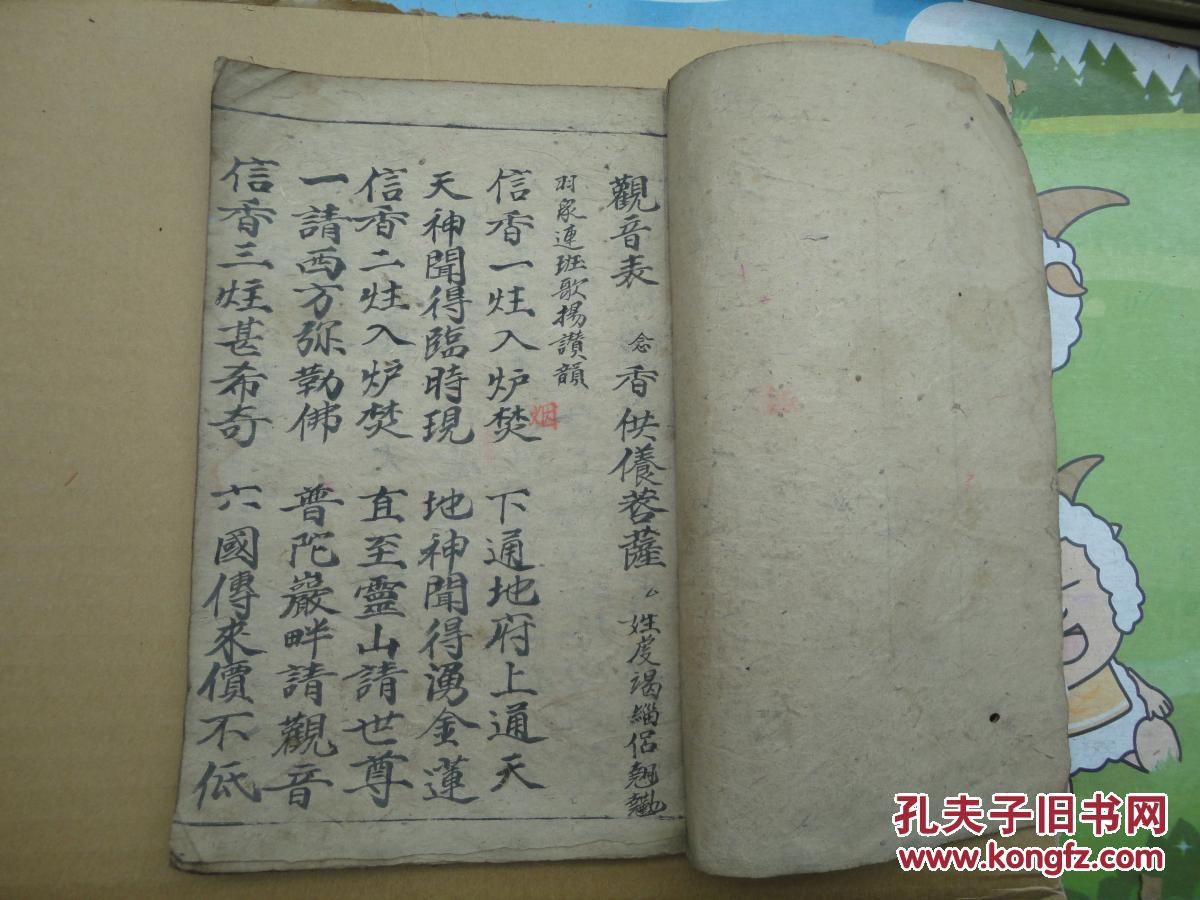 觀音表 念 香供養菩薩 姓虔
羽衆連班歌揚讚韻
信香一炷入炉焚 下通地府上通天
烟
天神聞得臨時現 地神聞得湧金蓮
信香二炷入炉焚 直至靈山請世尊
一請西方弥勒佛 普陀巖畔請觀音
信香三炷甚希奇 六國傳來價不低
孔夫子旧书网
www.kongfz.com